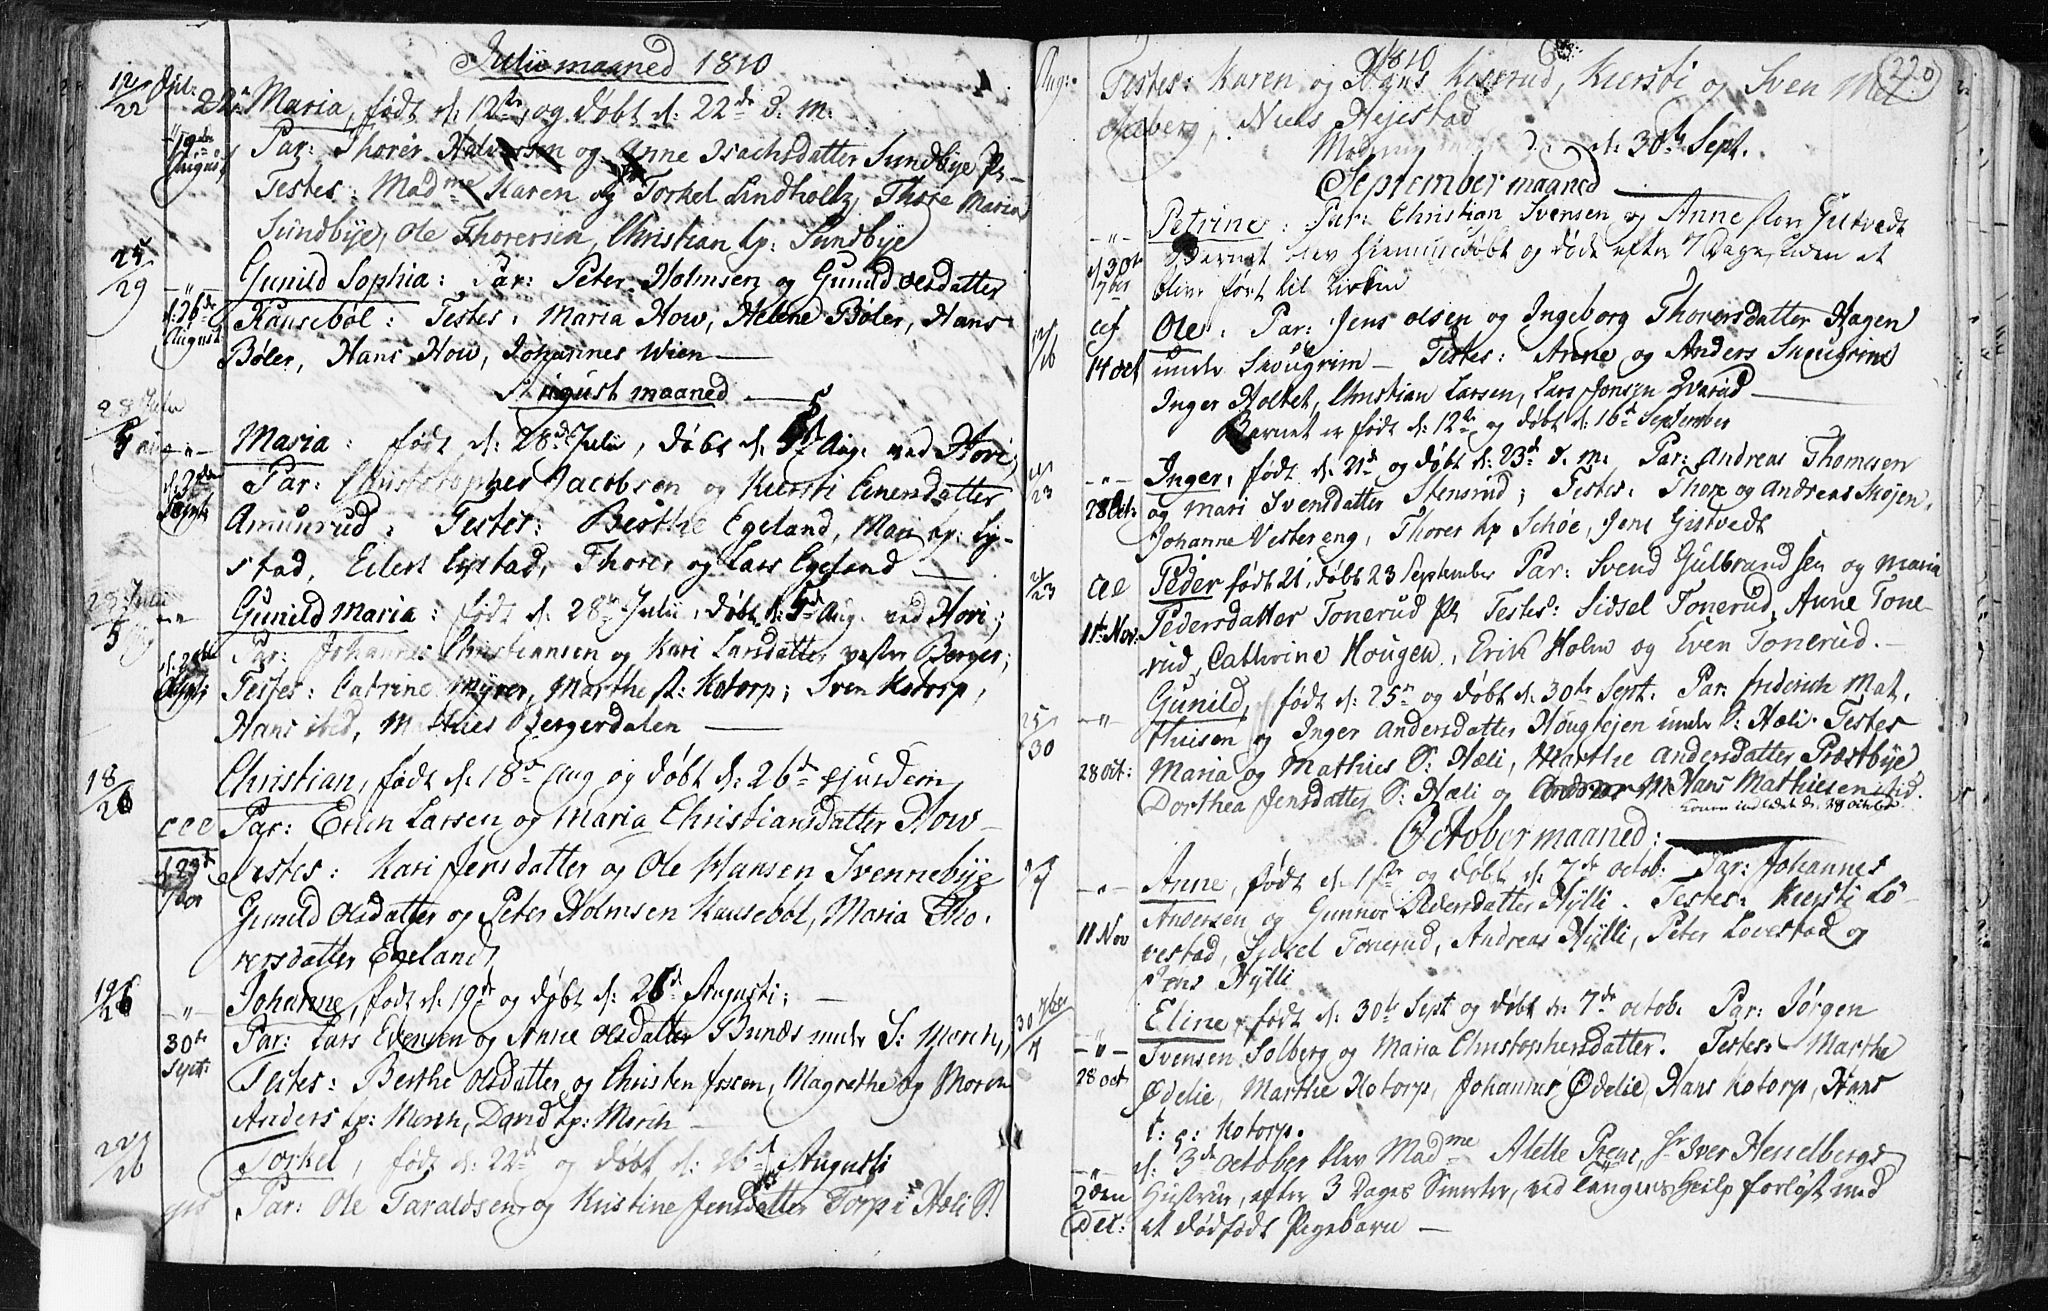 Julii maaned 1810
12/22 Jul: 22de Maria, født d: 12te, og døbt d: 22de d. m.
19de August
Par: Thorer Halversen og Anne Isachsdatter Sundbÿe Pl
Testes: Madme Karen og Torkel Lindholtz, Thore Marias
Sundbÿe, Ole Thorersen, Christian hp: Sundbÿe
25/29 Gunild Sophia: Par: Peter Holmsen og Gunild olesdatter
d: 26de August
Kausebøl: Testes: Maria How, Helene Bøler, Hans
Bøler, Hans How, Johannes Wien
August maaned
28 Julii 5
Maria: født d: 28de Julii, døbt d: 5te Aug. ved Hovi;
Par: Christopher Jacobsen og Kiersti Einersdatter
Amunrud: Testes: Berthe Egeland, Mari hp: Ly-
stad, Eilert Lystad, Thorer og Lars Egeland
28 Julii 5
Gunild Maria: født d: 28de Julii, døbt d: 5te Aug. ved Hovi;
Par: Johannes Christiansen og Kari Larsdatter vestre Berger;
Testes: Catrine Mÿrer, Marthe st: Kotorp; Sven Kotorp,
Hans ibid, Mathies Bergerdalen
18/26 Christian, født d: 18de Aug og døbt d: 26de ejusdem
Par: Erich Larsen og Maria Christiansdatter How
Testes: Kari Jensdatter og Ole Hansen Svennebÿe
Gunild Olsdatter og Peter Holmsen Kausebøl, Maria Tho-
rersdatter Egeland
19/26 Johanne, født d: 19de og døbt d: 26de Augusti;
30te Sept:
Par: Lars Evensen og Anne Olsdatter Bunæs under S: Morch,
Testes: Berthe Olsdatter og Christen Ersen, Magrethe og Moren
Anders hp: Morch, David hp: Morch
22/26 Torkel, født d: 22de og døbt d: 26de Augusti
Par: Ole Taraldsen og Kristine Jensdatter Torp i Hæli S!
1810
220
Aug:
Testes: Karen og Hans Kiærrud, Kiersti og Sven Mel-
leberg, Niels Hejestad
d: 30te Sept.
September maaned
Petrine: Par: Christian Svensen og Anne stor Gutvedt
d 30te 7ber
Barnet blev hiemmedøbt og døde efter 7 Dage, uden at
blive ført til Kirken
12/16 Ole: Par: Jens olsen og Ingeborg Thorersdatter Hagen
14 oct under Skougrim - Testes: Anne og Anders Skougrim
Inger Holtet, Christian Larsen, Lars Jonsen Qvarud
Barnet er født d: 12te og døbt d: 16de September
21/23 Inger, født d: 21de og døbt d: 23de d. m. Par: Andreas Thomesen
28 Oct: og Mari Svensdatter Stensrud; Testes: Thore og Andreas Skøjen,
Johanne Vestereng, Thorer hp Schøe, Jens Gistvedt
21/23 Peder født 21, døbt 23 September Par: Svend Gulbrandsen og Maria
11te Nov: Pedersdatter Tonerud Pl Testes: Sidsel Tonerud, Anne Tone-
rud, Cathrine Hougen, Erik Holm og Even Tonerud.
25/30 Gunild, født d: 25de og døbt d: 30te Sept. Par: friderich Mat-
thisen og Inger Andersdatter Houglejen under S: Hæli. Testes
28 oct: Maria og Mathies S: Hæli, Marthe Andersdatter Præstbÿe
Dorthea Jensdatter S: Hæli og Hans Mathiesen ibid.
Konen indledet d: 28 october
October maaned:
1/7 Anne, født d: 1ste og døbt d: 7de octob: Par: Johannes
Andersen og Gunnor Pedersdatter Hÿlli. Testes: Kiersti Lø-
11 Nov vestad, Sidsel Tonerud, Andreas Hÿlli, Peter Løvestad og
Jens Hÿlli
30 7ber/7 Eline, født d: 30te Sept og døbt d: 7de octob. Par: Jørgen
Svensen Solberg og Maria Christophersdatter. Testes: Marthe
28 oct Ødelie, Marthe Kotorp, Johannes Ødelie, Hans Kotorp, Hans
t: g: Kotorp.
d: 3de October blev Madme Alette Preus, Hr Iver Hesselbergs
2den Hustrue, efter 3 Dages Smerter, ved Tangens Hielp forløst med
Dec: et dødfødt Pigebarn